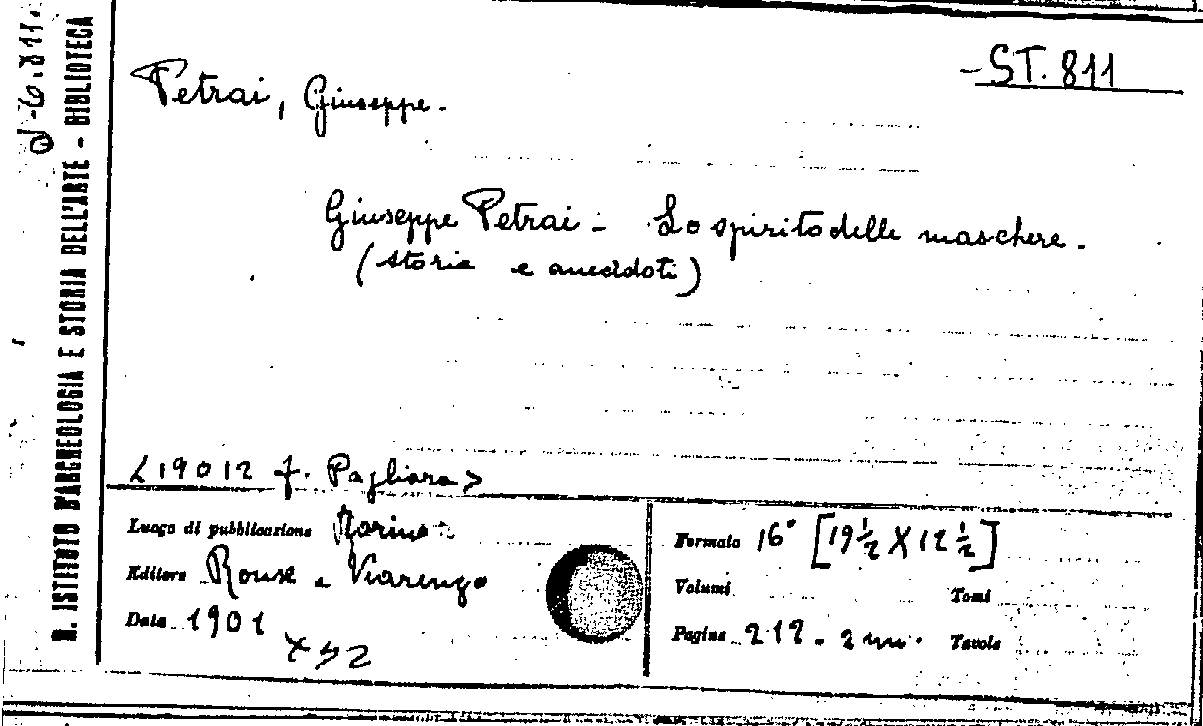 R. ISTITUTO D'ARCHEOLOGIA E STORIA DELL'ARTE - BIBLIOTECA
ST. 811
Petrai, Giuseppe.
Giuseppe Petrai - Lo spirito delle maschere.
(storia e aneddoti)
<19012 f. Pagliara>
Luogo di pubblicazione Torino
Editore Roux e Viarengo
Data 1901
Formato 16° [19 ½ X 12 ½]
Volumi Tomi
Pagine 212 - 2 Tavole